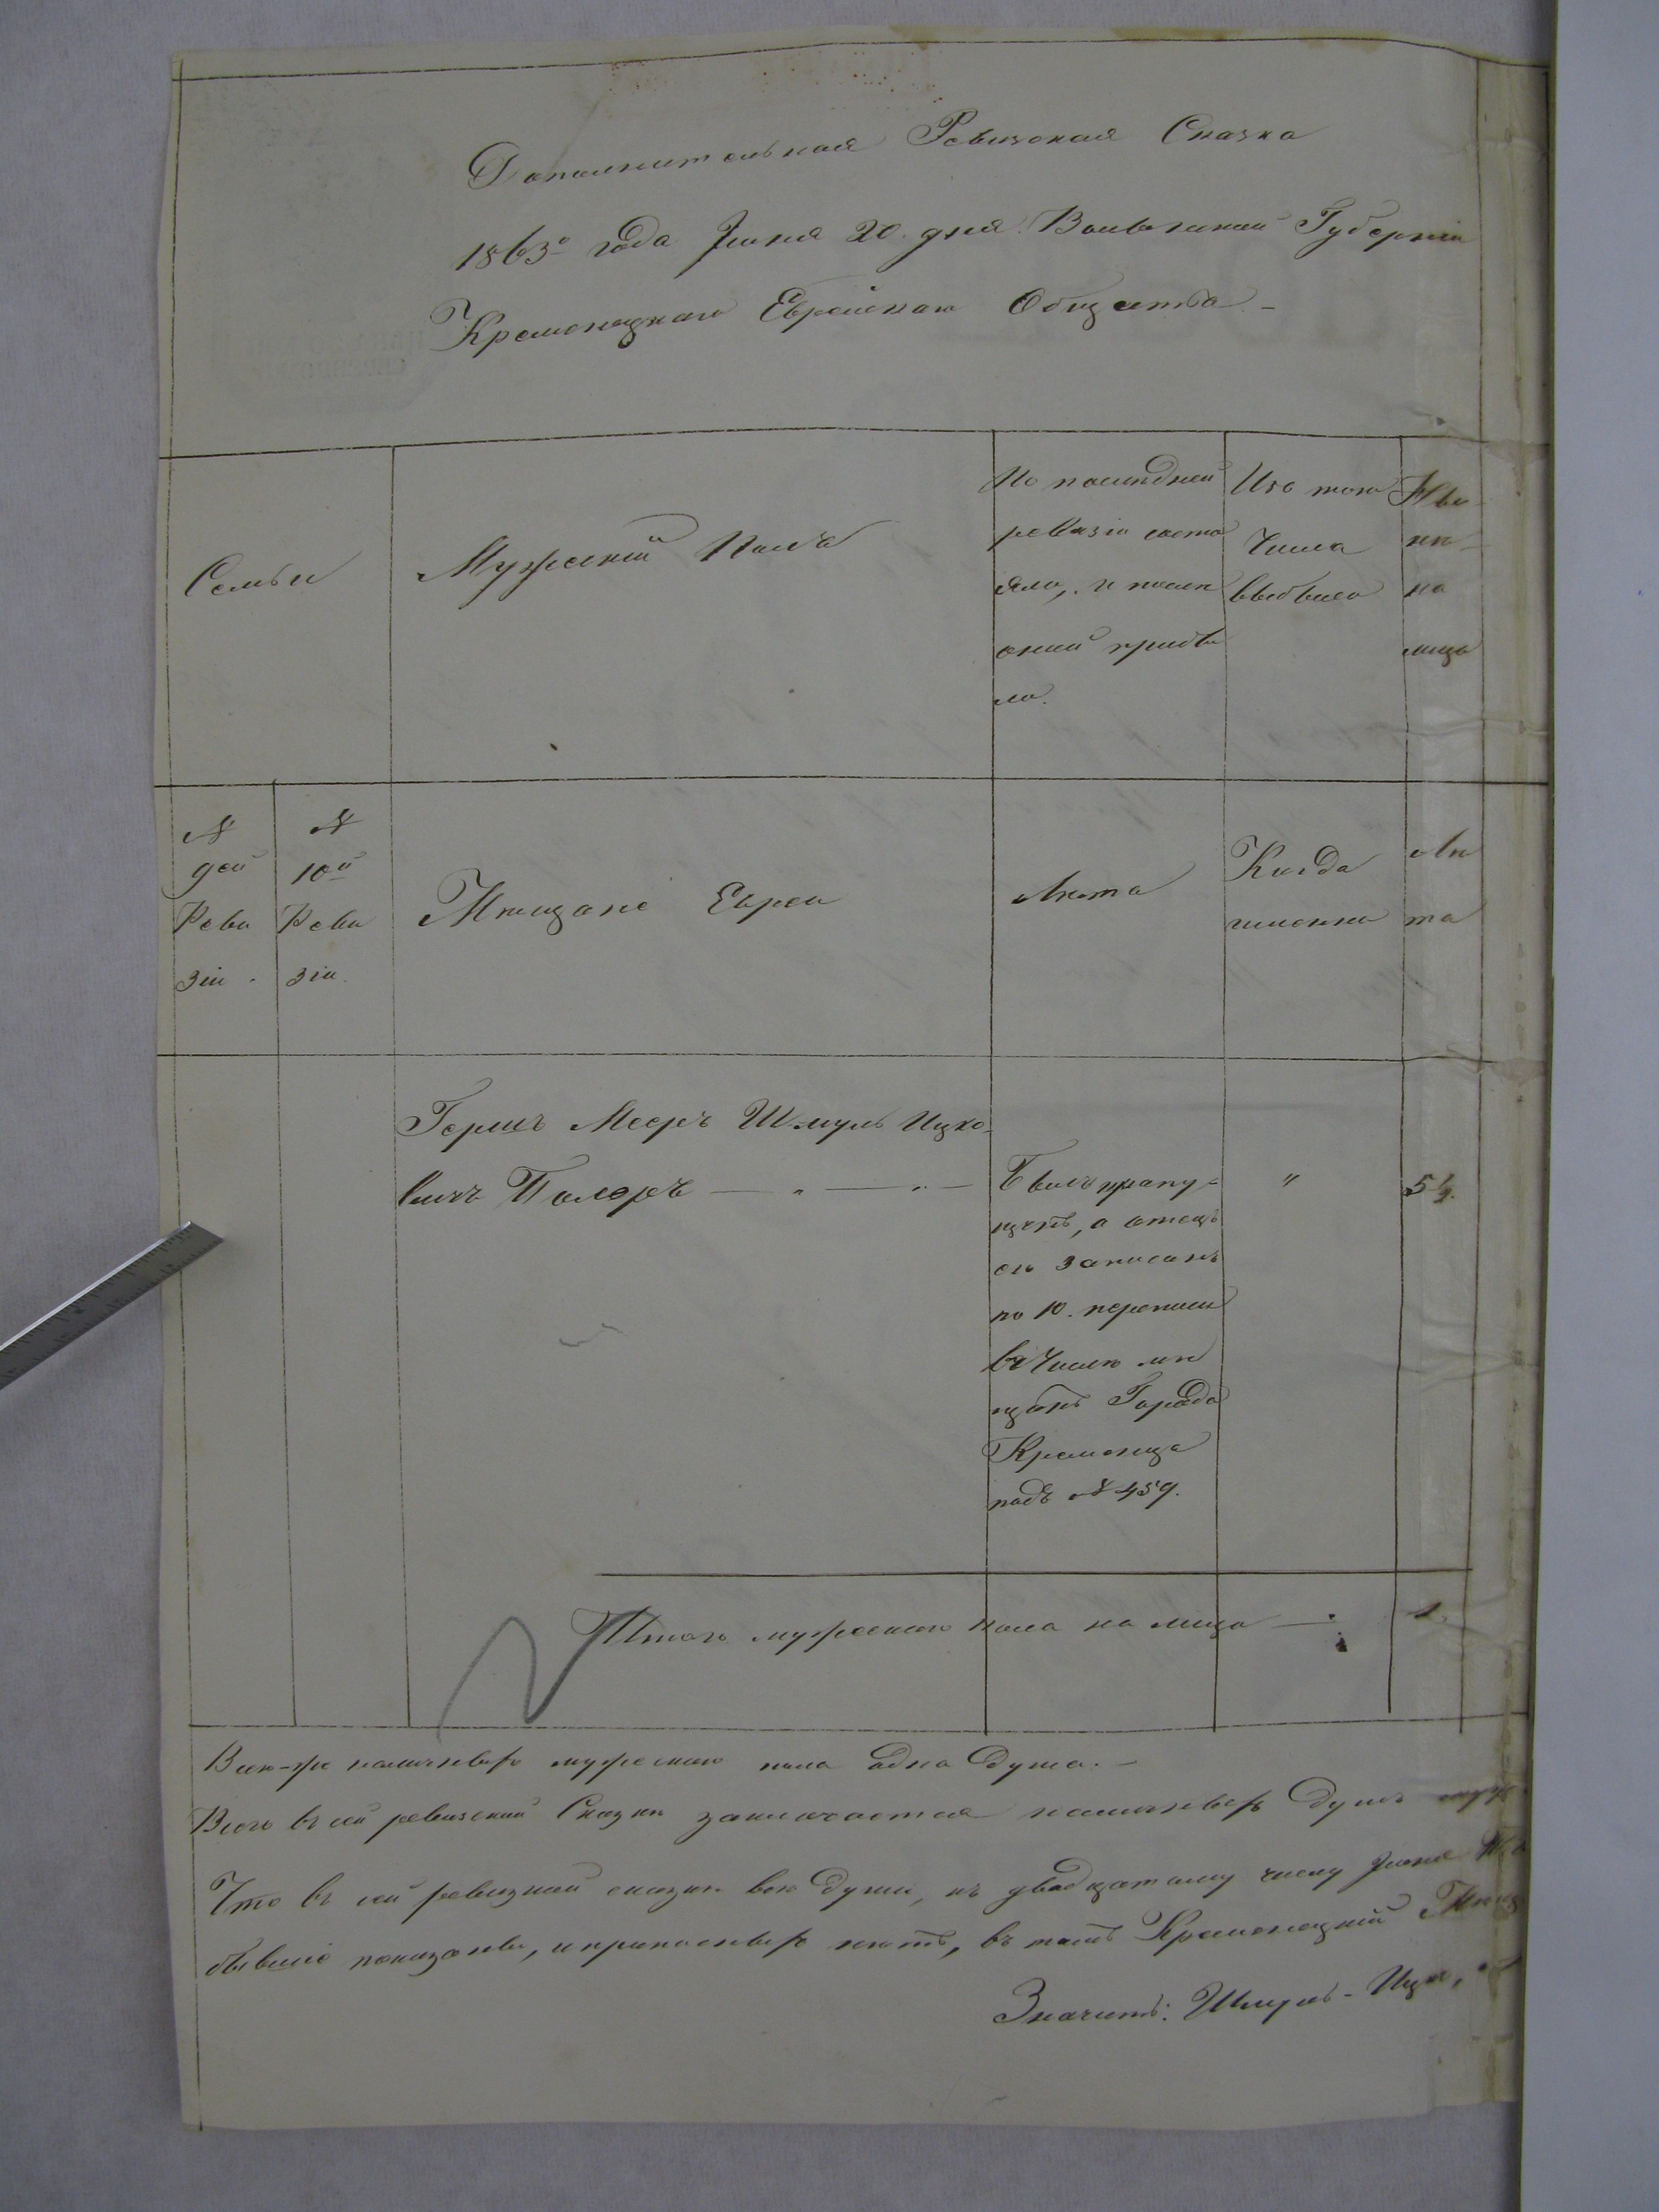 Дополнительная Ревизская Сказка
1863го года Июня 20 дня Волынской Губерніи
Кременецкаго Еврейскаго Общества
Семьи
Мужескій Полъ
По последней
ревизіи состо
яло, и после
оной прибы
ло.
Изъ того
Числа
выбыло
Ны
не
на
лицо
№
9ой
Реви
зіи
№
10й
Реви
зіи
Мещане Евреи
Лета
Когда
именно
Ле
та
Гершъ Мееръ Шмуль Ицко-
вичъ Полеръ
Былъ пропу-
щенъ, а отецъ
его записанъ
по 10. переписи
въ Числе ме
щанъ Города
Кременца
подъ № 459.
"
5½.
Итого мужескаго пола на лицо
1.
Всехъ-же наличныхъ мужескаго пола одна душа.
Всего въ сей ревизской Сказке заключается наличныхъ душъ муж
Что въ сей ревизской сказке все души, къ двадцатому числу Июня
бывшіе показаны, и прописныхъ нетъ, въ томъ Кременецкій Мещ
Значитъ: Шмуль-Ицко,